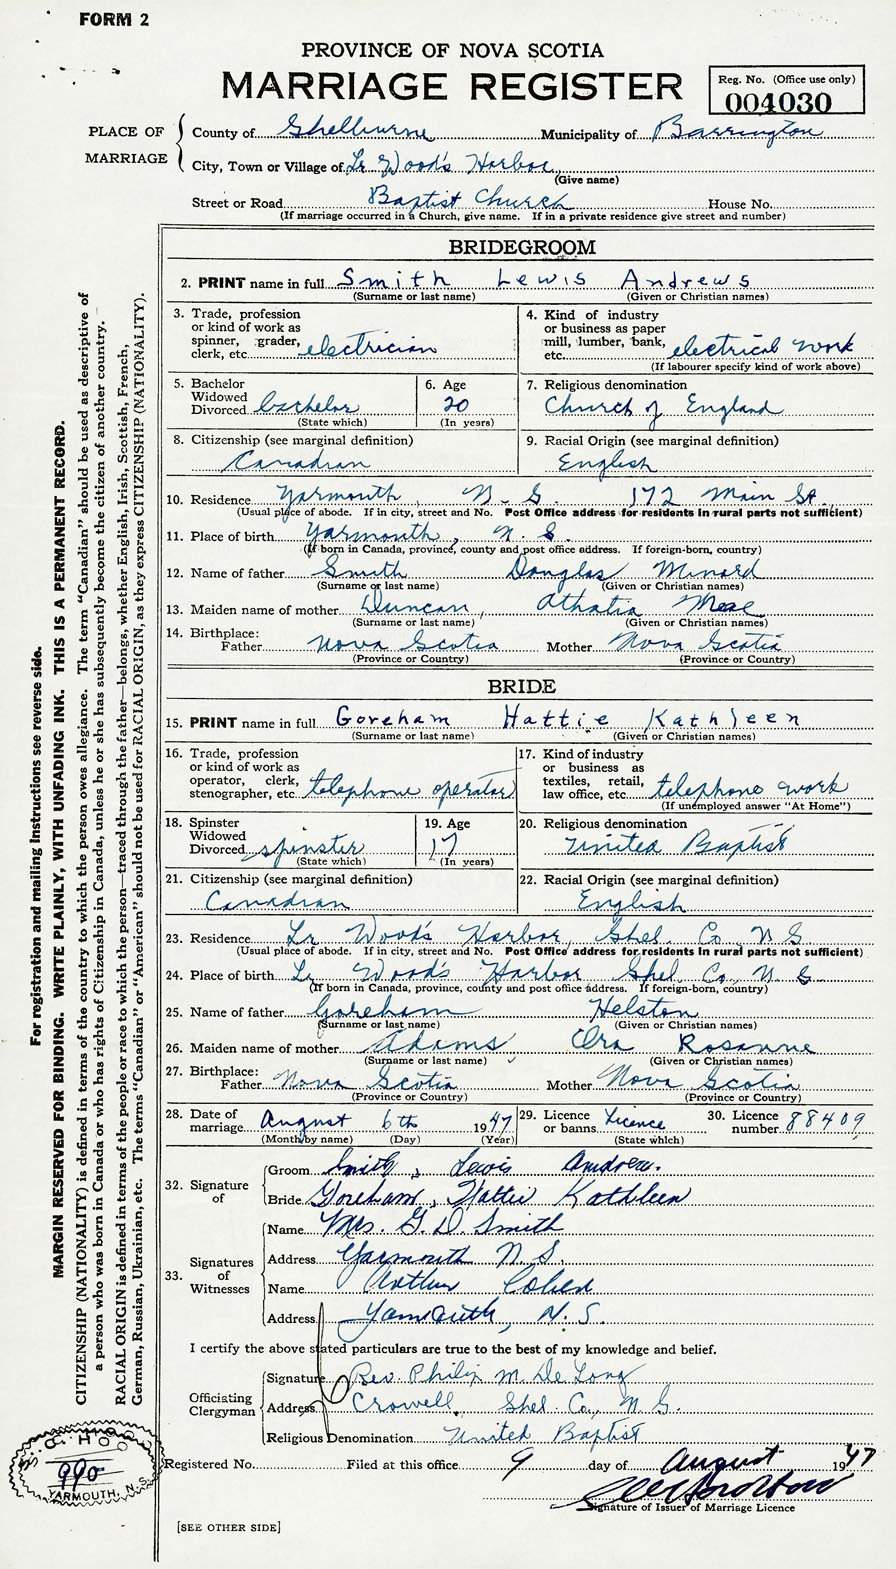 FORM 2
PROVINCE OF NOVA SCOTIA
MARRIAGE REGISTER
Reg. No. (Office use only)
004030
PLACE OF MARRIAGE
County of Shelburne Municipality of Barrington
City, Town or Village of Lr Wood's Harbor
(Give name)
Street or Road Baptist Church House No.
(If marriage occurred in a Church, give name. If in a private residence give street and number)
BRIDEGROOM
2. PRINT name in full Smith Lewis Andrews
(Surname or last name) (Given or Christian names)
3. Trade, profession or kind of work as spinner, grader, clerk, etc. electrician
4. Kind of industry or business as paper mill, lumber, bank, etc. electrical work
(If labourer specify kind of work above)
5. Bachelor Widowed Divorced bachelor
(State which)
6. Age 20
(In years)
7. Religious denomination
Church of England
8. Citizenship (see marginal definition)
Canadian
9. Racial Origin (see marginal definition)
English
10. Residence Yarmouth, N. S. 172 Main St.
(Usual place of abode. If in city, street and No. Post Office address for residents in rural parts not sufficient)
11. Place of birth Yarmouth, N. S.
(If born in Canada, province, county and post office address. If foreign-born, country)
12. Name of father Smith Douglas Minard
(Surname or last name) (Given or Christian names)
13. Maiden name of mother Duncan, Athatia
(Surname or last name) (Given or Christian names)
14. Birthplace:
Father Nova Scotia Mother Nova Scotia
(Province or Country) (Province or Country)
BRIDE
15. PRINT name in full Goreham Hattie Kathleen
(Surname or last name) (Given or Christian names)
16. Trade, profession or kind of work as operator, clerk, stenographer, etc. telephone operator
17. Kind of industry or business as textiles, retail, law office, etc. telephone work
(If unemployed answer "At Home")
18. Spinster Widowed Divorced spinster
(State which)
19. Age 17
(In years)
20. Religious denomination
United Baptist
21. Citizenship (see marginal definition)
Canadian
22. Racial Origin (see marginal definition)
English
23. Residence Lr Wood's Harbor, Shel. Co, N S
(Usual place of abode. If in city, street and No. Post Office address for residents in rural parts not sufficient)
24. Place of birth Lr Wood's Harbor Shel. Co, N. S.
(If born in Canada, province, county and post office address. If foreign-born, country)
25. Name of father Goreham Helston
(Surname or last name) (Given or Christian names)
26. Maiden name of mother Adams, Ora Rosanne
(Surname or last name) (Given or Christian names)
27. Birthplace:
Father Nova Scotia Mother Nova Scotia
(Province or Country) (Province or Country)
28. Date of marriage August 6th 1947
(Month by name) (Day) (Year)
29. Licence or banns Licence
(State which)
30. Licence number 88409
32. Signature of
Groom Smith, Lewis Andrew.
Bride Goreham, Hattie Kathleen
33. Signatures of Witnesses
Name Mrs. G. D. Smith
Address Yarmouth N S.
Name Arthur Cohen
Address Yarmouth, N. S.
I certify the above stated particulars are true to the best of my knowledge and belief.
Officiating Clergyman
Signature Rev. Philip M. De Long
Address Crowell, Shel. Co., N S.
Religious Denomination United Baptist
Registered No. Filed at this office 9 day of August 1947
Signature of Issuer of Marriage Licence
[SEE OTHER SIDE]
For registration and mailing instructions see reverse side.
MARGIN RESERVED FOR BINDING. WRITE PLAINLY, WITH UNFADING INK. THIS IS A PERMANENT RECORD.
CITIZENSHIP (NATIONALITY) is defined in terms of the country to which the person owes allegiance. The term "Canadian" should be used as descriptive of
a person who was born in Canada or who has rights of Citizenship in Canada, unless he or she has subsequently become the citizen of another country.
RACIAL ORIGIN is defined in terms of the people or race to which the person—traced through the father—belongs, whether English, Irish, Scottish, French,
German, Russian, Ukrainian, etc. The terms "Canadian" or "American" should not be used for RACIAL ORIGIN, as they express CITIZENSHIP (NATIONALITY).
990
YARMOUTH, N.S.